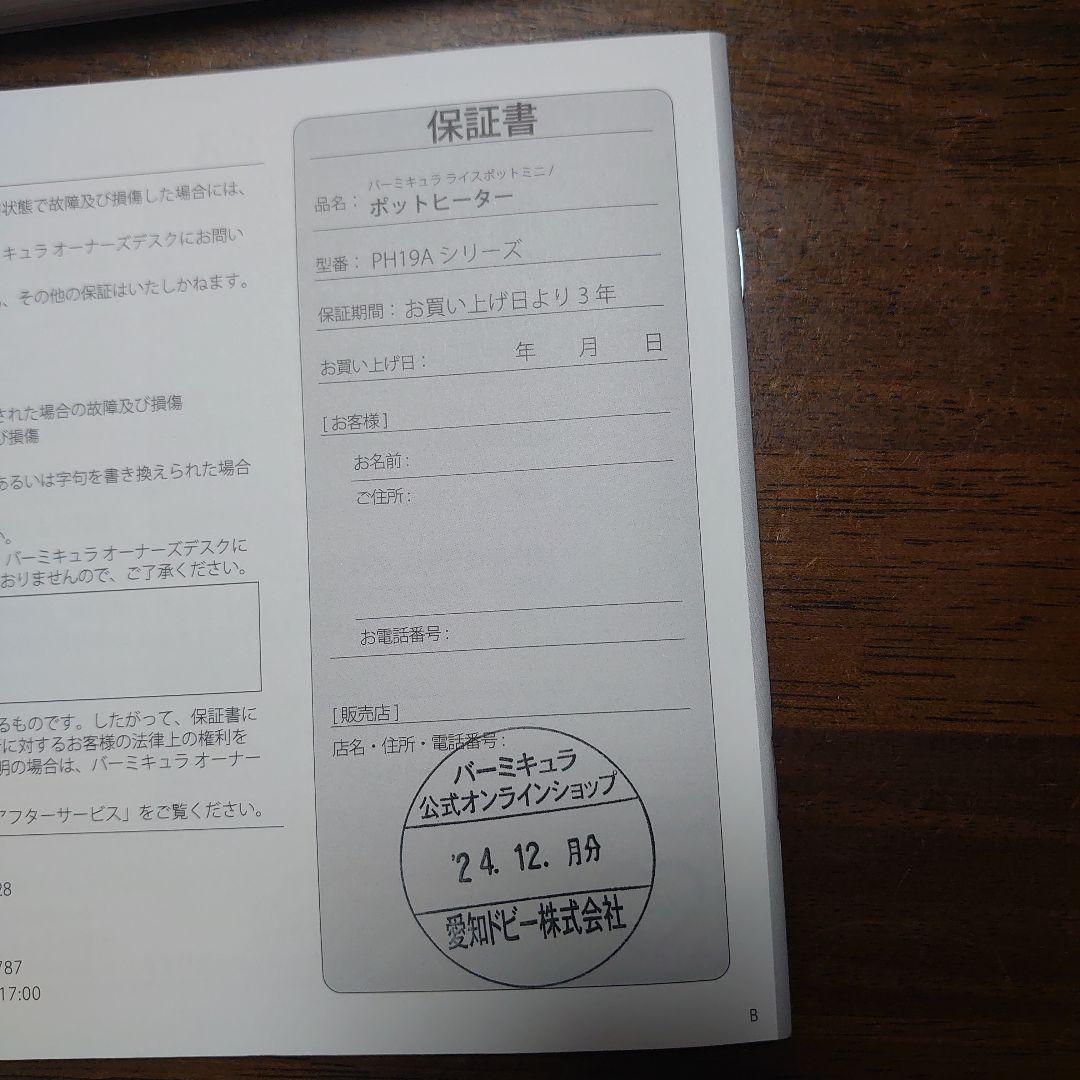 状態で故障及び損傷した場合には、
キュラ オーナーズデスクにお問い
、その他の保証はいたしかねます。
された場合の故障及び損傷
び損傷
あるいは字句を書き換えられた場合
い。
バーミキュラ オーナーズデスクに
おりませんので、ご了承ください。
るものです。したがって、保証書に
に対するお客様の法律上の権利を
明の場合は、バーミキュラ オーナー
アフターサービス」をご覧ください。
28
787
17:00
保証書
バーミキュラ ライスポットミニ /
品名： ポットヒーター
型番： PH19A シリーズ
保証期間： お買い上げ日より 3 年
お買い上げ日： 年 月 日
[ お客様 ]
お名前 :
ご住所 :
お電話番号 :
[ 販売店 ]
店名・住所・電話番号 :
バーミキュラ
公式オンラインショップ
'24. 12. 月分
愛知ドビー株式会社
B